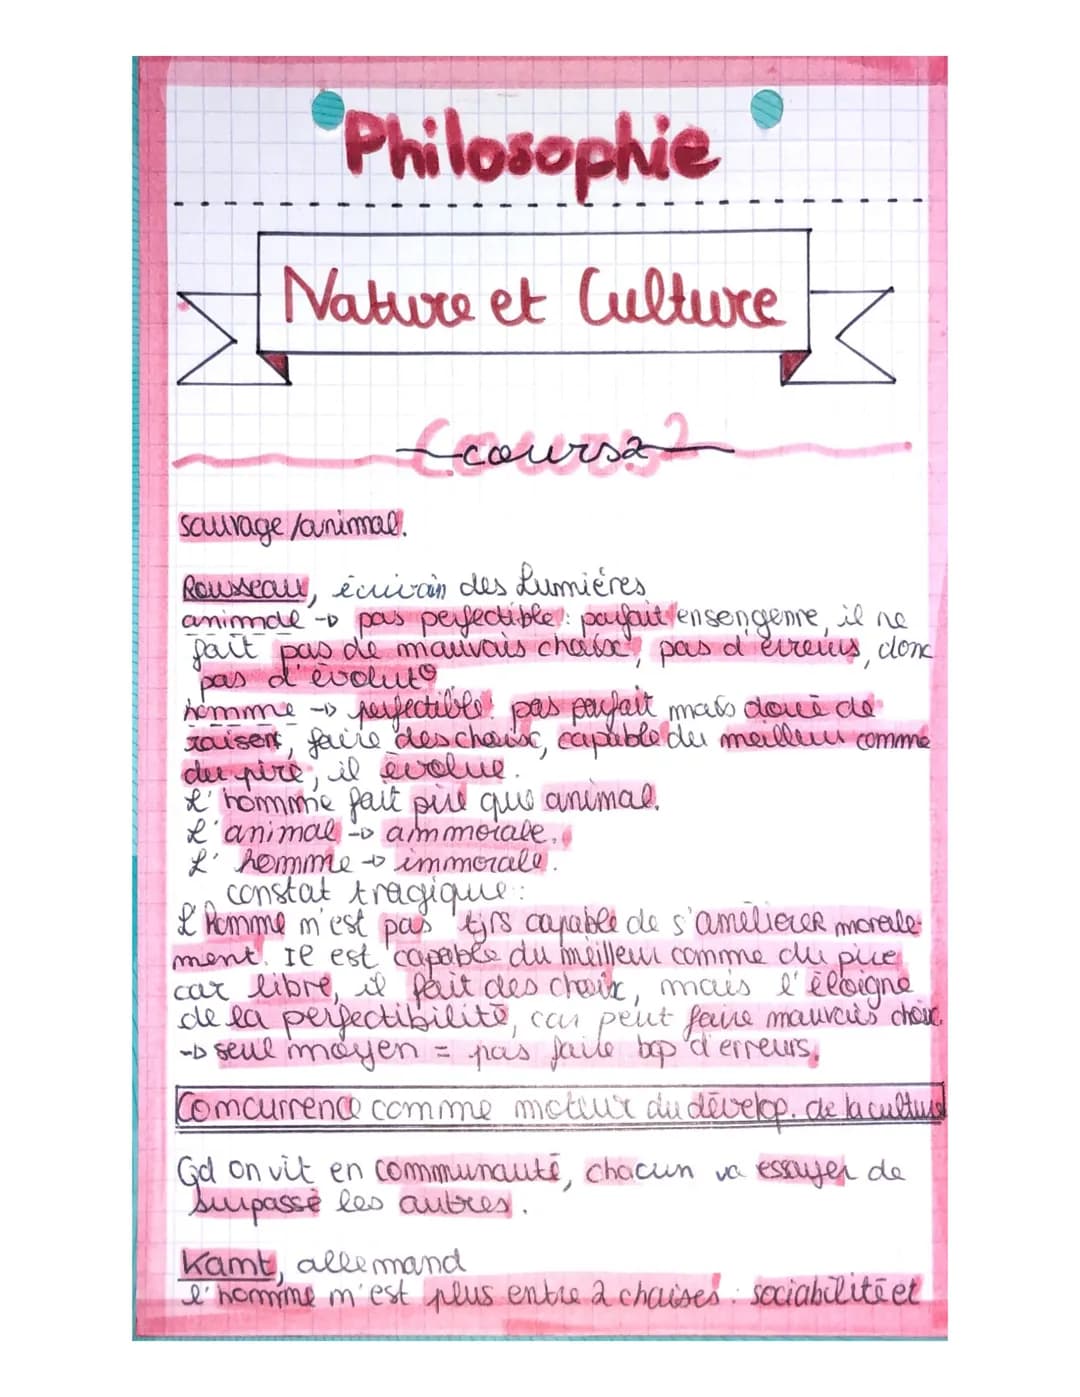 Philosophie
Nature et Culture
Cours 2
cours 2
sauvage/animal.
Rousseau, écrivain des Lumières
animale → pas perfectible : parfait en sen genre, il ne
fait pas de mauvais choix, pas d'erreurs, donc
pas d'évolut°
homme → perfectible : pas parfait mais doué de
raison, faire des choix, capable du meilleur comme
du pire, il évolue.
L'homme fait pire que animal.
L'animal → ammorale.
L'homme → immorale.
constat tragique :
L'homme n'est pas tjrs capable de s'améliorer morale-
ment. Il est capable du meilleur comme du pire
car libre, il fait des choix, mais l'éloigne
de la perfectibilité, car peut faire mauvais choix.
→ seul moyen = pas faire bcp d'erreurs.
Concurrence comme moteur du dévelop. de la culture
Qd on vit en communauté, chacun va essayer de
surpassé les autres.
Kant, allemand
l'homme n'est plus entre 2 chaises : sociabilité et